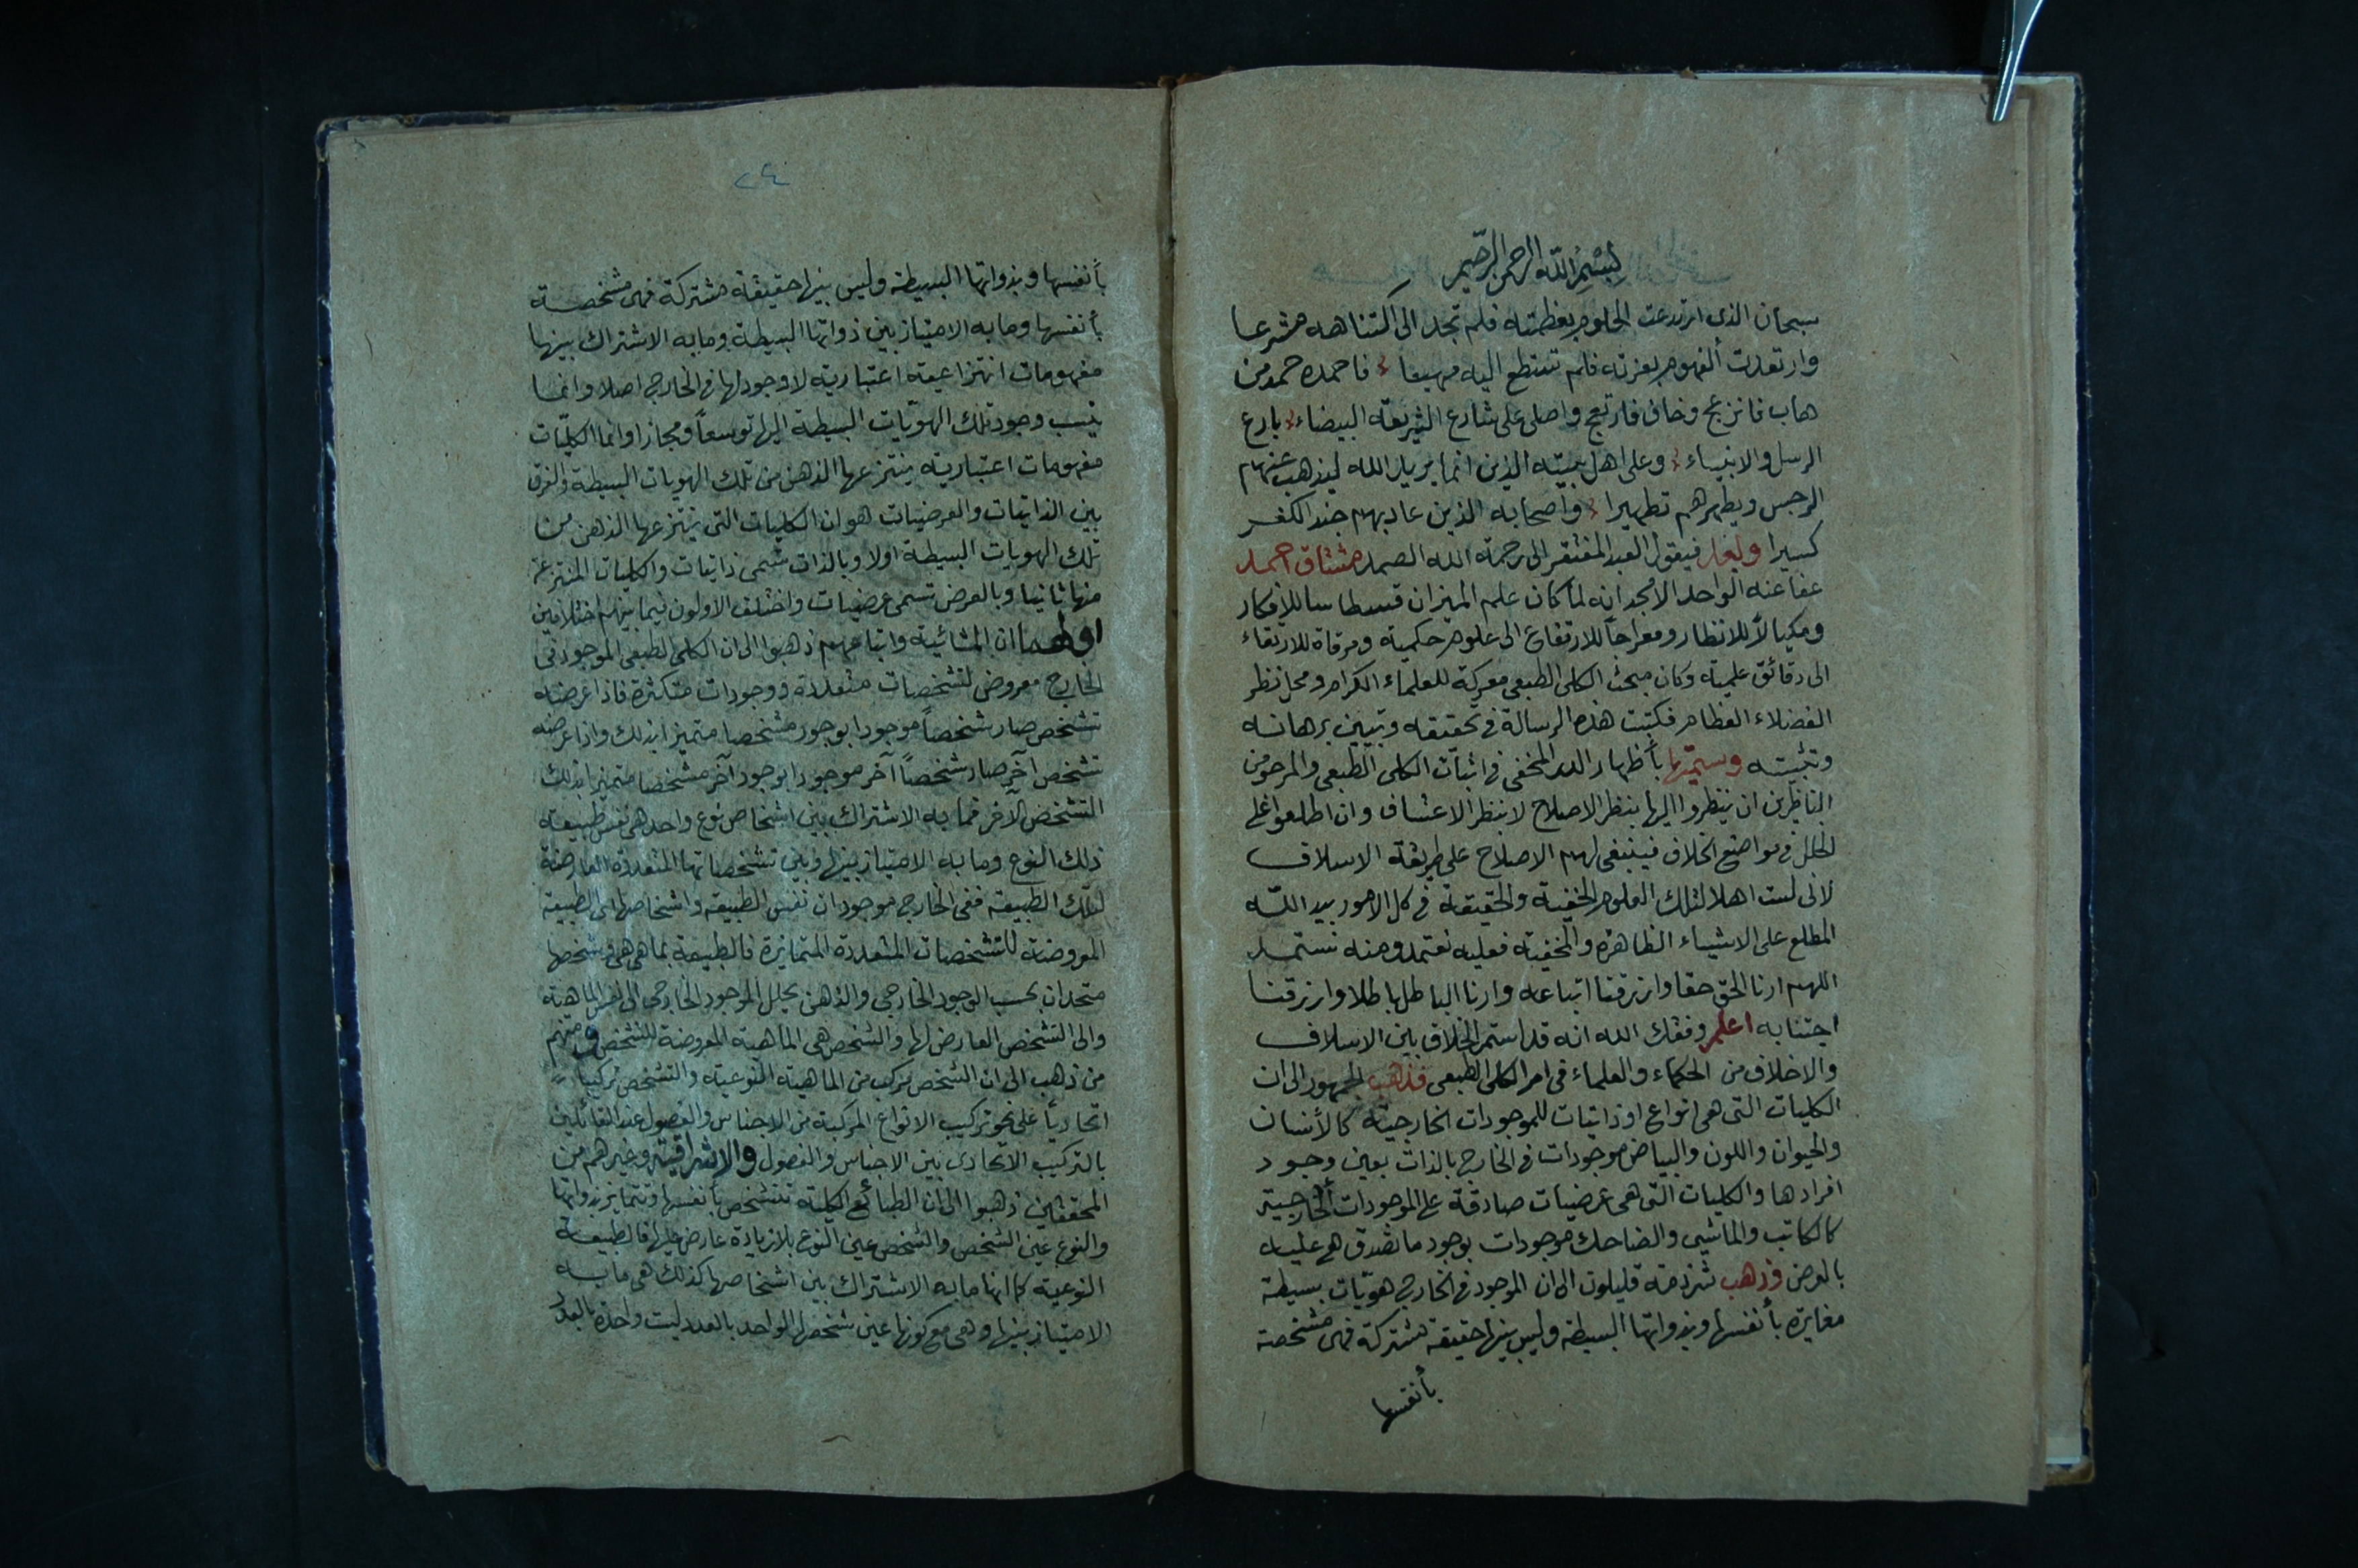 بسم الله الرحمن الرحيم
سبحان الذى ارتدعت الحلوم بعظمته فلم تجد الى اكتناهه مشرعا
وارتعدت ألفهوم بعزته فلم تستطع اليه مهيعا فاحمده حمد من
هاب فانزعج وخاف فارتعج واصلى على شارع الشريعة البيضاء بارع
الرسل والانبياء وعلى اهل بيته الذين انما يريد الله ليذهب عنهم
الرجس ويطهرهم تطهيرا واصحابه الذين عاد بهم جند الكفر
كسيرا وبعد فيقول العبد المفتقر الى رحمة الله الصمد مشتاق احمد
عفا عنه الواحد الامجد انه لما كان علم الميزان قسطاسا للافكار
ومكيالاً للانظار ومعراجاً للارتفاع الى علوم حكمية ومرقاة للارتقاء
الى دقائق علمية وكان مبحث الكلى الطبعى معركة للعلماء الكرام ومحل نظر
الفضلاء العظام فكتبت هذه الرسالة فى تحقيقه وتبيين برهانه
وتثبيته وسميتها بأظهار الدر المخفى فى اثبات الكلى الطبعى والمرجو من
الناظرين ان ينظروا اليها بنظر الاصلاح لا بنظر الاعتساف وان اطلعوا على
الخلل فى مواضع الخلاف فينبغى لهم الاصلاح على طريقة الاسلاف
لانى لست اهلا لتلك العلوم الخفية والحقيقة فى كل الامور بيد الله
المطلع على الاشياء الظاهرة والخفية فعليه نعتمد ومنه نستمد
اللهم ارنا الحق حقا وارزقنا اتباعه وارنا الباطل باطلا وارزقنا
اجتنابه اعلم وفقك الله انه قد استمر الخلاف بين الاسلاف
والاخلاف من الحكماء والعلماء فى امر الكلى الطبعى فذهب الجمهور الى ان
الكليات التى هى انواع او ذاتيات للموجودات الخارجية كالأنسان
والحيوان واللون والبياض موجودات فى الخارج بالذات بعين وجود
افرادها والكليات التى هى عرضيات صادقة على الموجودات الخارجية
كالكاتب والماشى والضاحك موجودات بوجود ما تصدق هى عليه
بالعرض وذهب شرذمة قليلون الى ان الموجود فى الخارج هويّات بسيطة
مغايرة بأنفسها وبذواتها البسيطة وليس بينها حقيقة مشتركة فهى مشخصة
بأنفسها
٢٤
بأنفسها وبذواتها البسيطة وليس بينها حقيقة مشتركة فهى مشخصة
بأنفسها وما به الامتياز بين ذواتها البسيطة وما به الاشتراك بينها
مفهومات انتزاعية اعتبارية لا وجود لها فى الخارج اصلا وانما
ينسب وجود تلك الهويّات البسيطة اليها توسعاً ومجازا وانما الكليّات
مفهومات اعتبارية ينتزعها الذهن من تلك الهويات البسيطة والفرق
بين الذاتيات والعرضيات هو ان الكليات التى ينتزعها الذهن من
تلك الهويات البسيطة اولا وبالذات تسمى ذاتيات والكليات المنتزعة
منها ثانيا وبالعرض تسمى عرضيات واختلف الاولون فيما بينهم اختلافين
اولهما ان المشائية واتباعهم ذهبوا الى ان الكلى الطبعى الموجود فى
الخارج معروض لتشخصات متعددة ووجودات متكثرة فاذا عرضه
تشخص صار شخصاً موجودا بوجود مشخصا متميزا بذلك واذا عرضه
تشخص آخر صار شخصاً آخر موجودا بوجود آخر مشخصا متميزا بذلك
التشخص الآخر فما به الاشتراك بين اشخاص نوع واحد هى نفس طبيعة
ذلك النوع وما به الامتياز بينها وبين تشخصاتها المتعددة العارضة
لتلك الطبيعة ففى الخارج موجودان نفس الطبيعة واشخاصها اى الطبيعة
المعروضة للتشخصات المتعددة المتمايزة فالطبيعة بما هى هى وشخصها
متحدان بحسب الوجود الخارجى والذهن يحلل الموجود الخارجى الى نفس الماهية
والى التشخص العارض لها والشخص هى الماهية المعروضة للتشخص ومنهم
من ذهب الى ان الشخص مركب من الماهية النوعية والتشخص تركيبا
اتحادياً على نحو تركيب الانواع المركبة من الاجناس والفصول عند القائلين
بالتركيب الاتحادى بين الاجناس والفصول والاشراقية وغيرهم من
المحققين ذهبوا الى ان الطبائع الكلية تتشخص بأنفسها وتتمايز بذواتها
والنوع عين الشخص والشخص عين النوع بلا زيادة عارض عليها فالطبيعة
النوعية كما انها ما به الاشتراك بين اشخاصها كذلك هى ما به
الامتياز بينها وهى مع كونها عين شخصها الواحد بالعدد ليست واحدة بالعدد